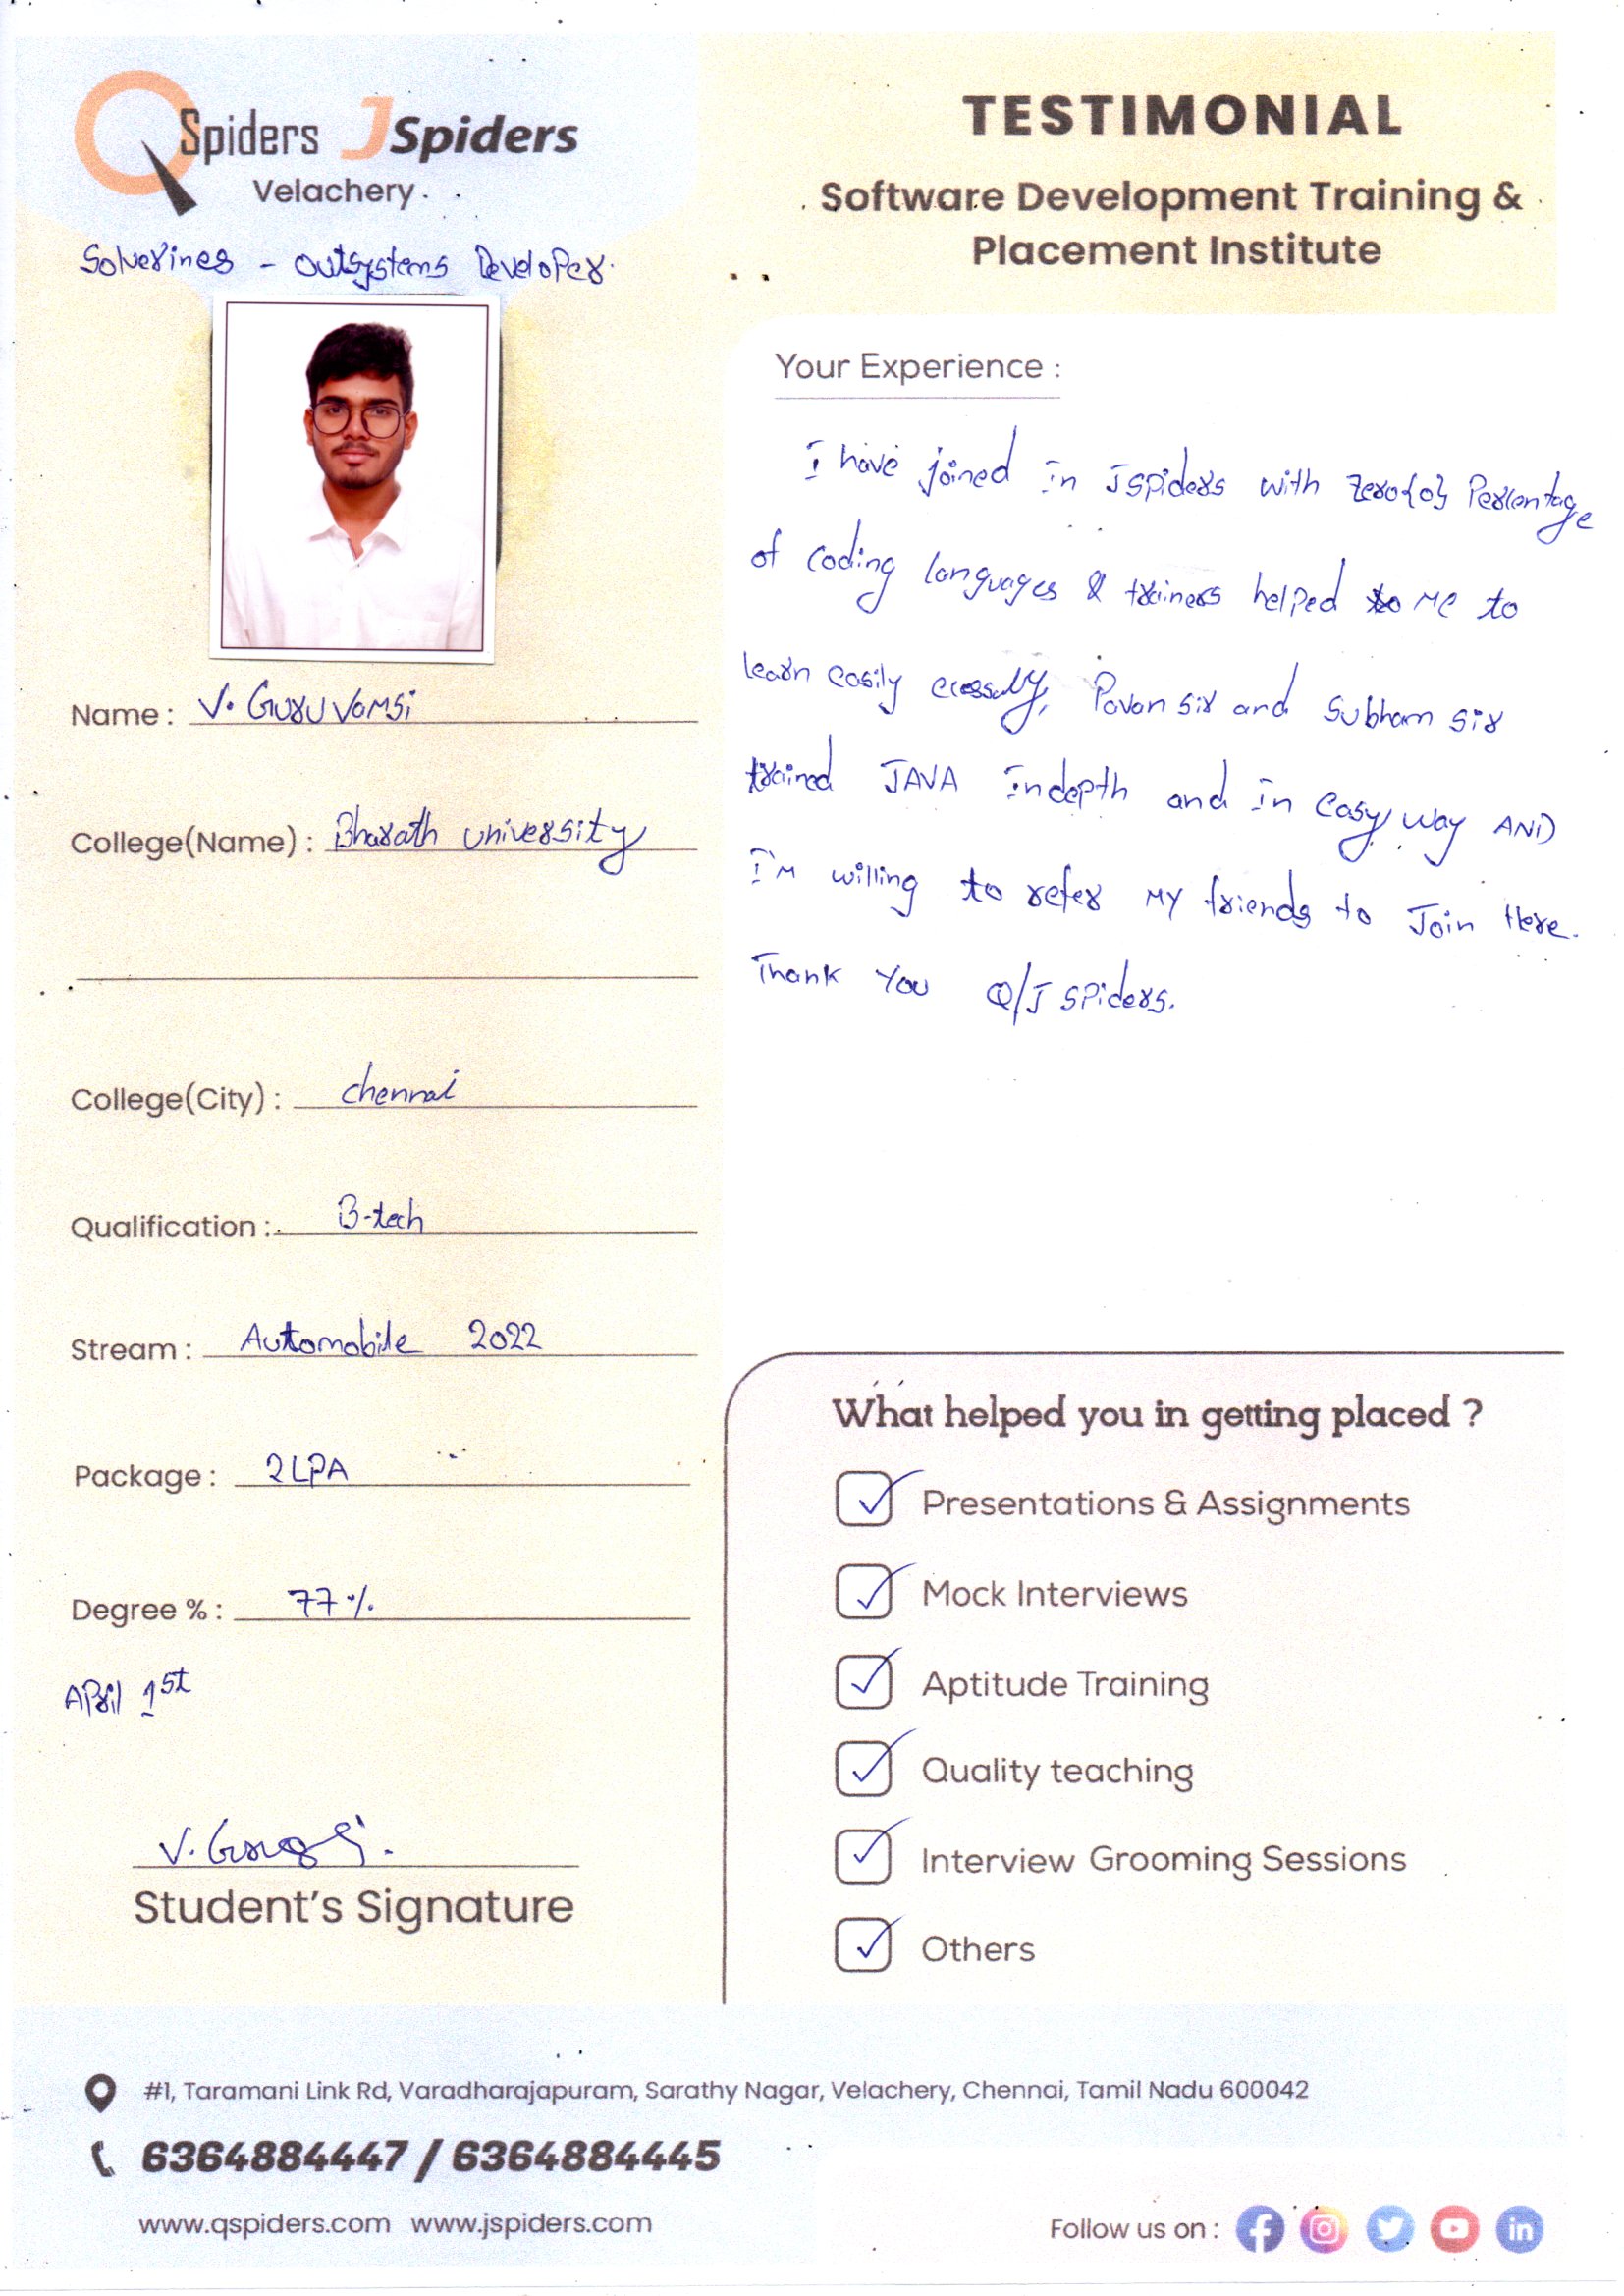 QSpiders JSpiders
Velachery
Solverines - Outsystems Developer.
TESTIMONIAL
Software Development Training &
Placement Institute
Name : V. Guru Vamsi
College(Name) : Bharath university
College(City) : chennai
Qualification : B-tech
Stream : Automobile 2022
Package : 2LPA
Degree % : 77%
April 1st
Student's Signature
Your Experience :
I have joined in Jspiders with zero{0} Percentage
of coding languages & trainers helped to me to
learn easily Pavan sir and Subham sir
trained JAVA indepth and in easy way AND
I'm willing to refer my friends to Join Here.
Thank You Q/J spiders.
What helped you in getting placed ?
Presentations & Assignments
Mock Interviews
Aptitude Training
Quality teaching
Interview Grooming Sessions
Others
#1, Taramani Link Rd, Varadharajapuram, Sarathy Nagar, Velachery, Chennai, Tamil Nadu 600042
6364884447 / 6364884445
www.qspiders.com www.jspiders.com
Follow us on :